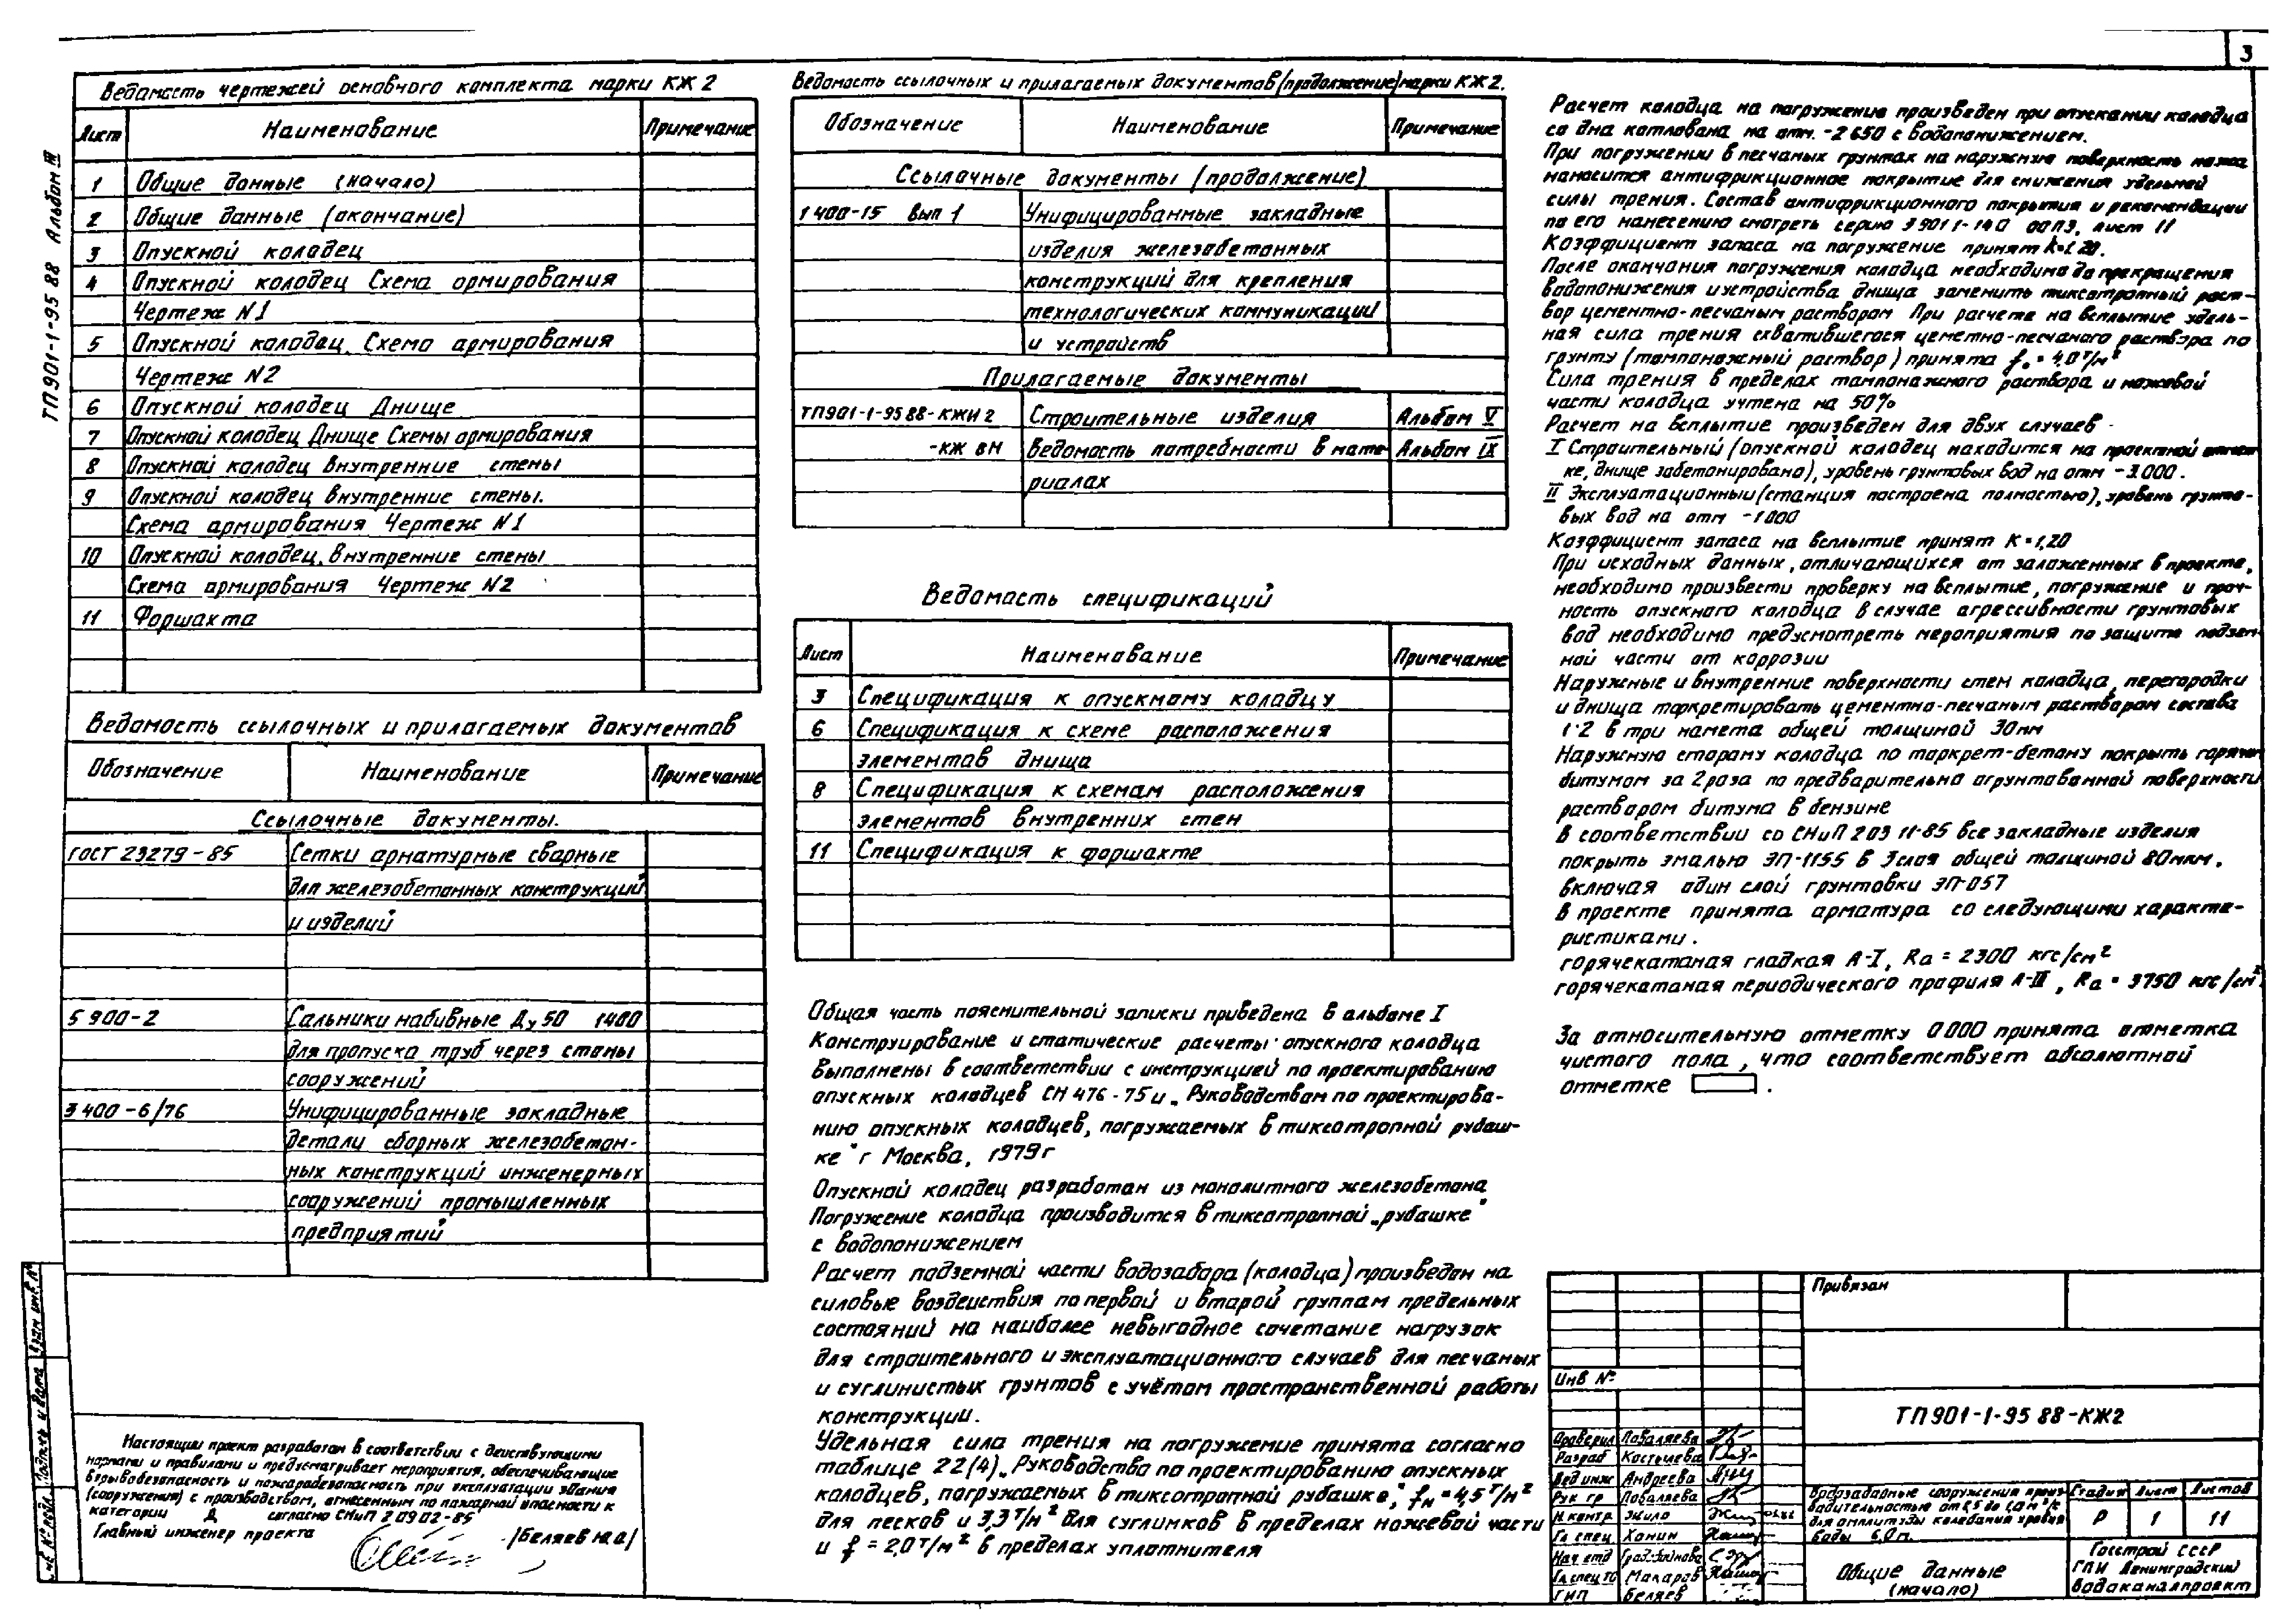 3
ТП901-1-95 88 Альбом III
Ведомость чертежей основного комплекта марки КЖ 2
Лист Наименование Примечание
1 Общие данные (начало)
2 Общие данные (окончание)
3 Опускной колодец
4 Опускной колодец Схема армирования
Чертеж N1
5 Опускной колодец. Схема армирования
Чертеж N2
6 Опускной колодец Днище
7 Опускной колодец Днище Схемы армирования
8 Опускной колодец Внутренние стены
9 Опускной колодец Внутренние стены.
Схема армирования Чертеж N1
10 Опускной колодец. Внутренние стены
Схема армирования Чертеж N2
11 Форшахта
Ведомость ссылочных и прилагаемых документов
Обозначение Наименование Примечание
Ссылочные документы.
ГОСТ 23279-85 Сетки арматурные сварные
для железобетонных конструкций
и изделий
5 900-2 Сальники набивные Ду 50 1400
для пропуска труб через стены
сооружений
3 400-6/76 Унифицированные закладные
детали сборных железобетон-
ных конструкций инженерных
сооружений промышленных
предприятий
Настоящий проект разработан в соответствии с действующими
нормами и правилами и предусматривает мероприятия, обеспечивающие
взрывобезопасность и пожаробезопасность при эксплуатации здания
(сооружения) с производством, отнесенным по пожарной опасности к
категории Д согласно СНиП 2 09 02-85
Главный инженер проекта /Беляев Ю.А/
Ведомость ссылочных и прилагаемых документов (продолжение) марки КЖ 2.
Обозначение Наименование Примечание
Ссылочные документы (продолжение)
1 400-15 вып 1 Унифицированные закладные
изделия железобетонных
конструкций для крепления
технологических коммуникаций
и устройств
Прилагаемые документы
ТП901-1-95 88-КЖИ 2 Строительные изделия Альбом V
-КЖ ВМ Ведомость потребности в мате Альбом IX
риалах
Ведомость спецификаций
Лист Наименование Примечание
3 Спецификация к опускному колодцу
6 Спецификация к схеме расположения
элементов днища
8 Спецификация к схемам расположения
элементов внутренних стен
11 Спецификация к форшахте
Общая часть пояснительной записки приведена в альбоме I
Конструирование и статические расчеты опускного колодца
выполнены в соответствии с инструкцией по проектированию
опускных колодцев СН 476-75 и „Руководством по проектирова-
нию опускных колодцев, погружаемых в тиксотропной рубаш-
ке" г Москва, 1979г
Опускной колодец разработан из монолитного железобетона
Погружение колодца производится в тиксотропной „рубашке"
с водопонижением
Расчет подземной части водозабора (колодца) произведен на
силовые воздействия по первой и второй группам предельных
состояний на наиболее невыгодное сочетание нагрузок
для строительного и эксплуатационного случаев для песчаных
и суглинистых грунтов с учётом пространственной работы
конструкции.
Удельная сила трения на погружение принята согласно
таблице 22(4) „Руководства по проектированию опускных
колодцев, погружаемых в тиксотропной рубашке", fн = 4,5 т/м²
для песков и 3,3 т/м² для суглинков в пределах ножевой части
и f = 2,0 т/м² в пределах уплотнителя
Расчет колодца на погружение произведен при опускании колодца
со дна котлована на отм. -2 650 с водопонижением.
При погружении в песчаных грунтах на наружную поверхность ножа
наносится антифрикционное покрытие для снижения удельной
силы трения. Состав антифрикционного покрытия и рекомендации
по его нанесению смотреть серию 3 901 1-14 0 00ПЗ, лист 11
Коэффициент запаса на погружение принят k=1 20.
После окончания погружения колодца необходимо до прекращения
водопонижения и устройства днища заменить тиксотропный раст-
вор цементно-песчаным раствором При расчете на всплытие удель-
ная сила трения схватившегося цеметно-песчаного раствора по
грунту (тампонажный раствор) принята f. = 4,0 т/м²
Сила трения в пределах тампонажного раствора и ножевой
части колодца учтена на 50%
Расчет на всплытие произведен для двух случаев
I Строительный (опускной колодец находится на проектной отмет
ке, днище забетонировано), уровень грунтовых вод на отм -3.000.
II Эксплуатационный (станция построена полностью), уровень грунто-
вых вод на отм -1 000
Коэффициент запаса на всплытие принят К=1,20
При исходных данных, отличающихся от заложенных в проекте,
необходимо произвести проверку на всплытие, погружение и проч-
ность опускного колодца В случае агрессивности грунтовых
вод необходимо предусмотреть мероприятия по защите подзем
ной части от коррозии
Наружные и внутренние поверхности стен колодца, перегородки
и днища торкретировать цементно-песчаным раствором состава
1:2 в три намета общей толщиной 30мм
Наружную сторону колодца по торкрет-бетону покрыть горячим
битумом за 2 раза по предварительно огрунтованной поверхности
раствором битума в бензине
В соответствии со СНиП 2 03 11-85 все закладные изделия
покрыть эмалью ЭП-1155 в 3 слоя общей толщиной 80мкм,
включая один слой грунтовки ЭП-057
В проекте принята арматура со следующими характе-
ристиками.
горячекатаная гладкая А-I, Ra = 2300 кгс/см²
горячекатаная периодического профиля А-III, Ra = 3750 кгс/см²
За относительную отметку 0 000 принята отметка
чистого пола, что соответствует абсолютной
отметке .
Привязан
Инв №
ТП 901-1-95 88-КЖ2
Проверил Поваляева
Разраб Костычева
Вед инж Андреева
Рук гр Поваляева
Н.контр Жило
Гл спец Ханин
Нач отд
Гл спец ТО Макаров
ГИП Беляев
Водозаборные сооружения произ-
водительностью от 0,5 до 1,0 м³/с
для амплитуды колебаний уровня
воды 6,0 м.
Стадия Лист Листов
Р 1 11
Общие данные
(начало)
Госстрой СССР
ГПИ Ленинградский
Водоканалпроект
Взам инв.№
Подпись и дата
Инв № подл.